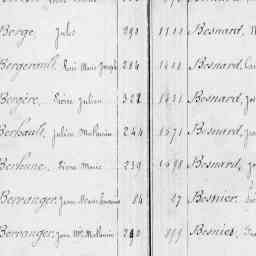 Berge, Jules 290 Besnard,
Bergerault, René Marie Joseph 284 Besnard,
Bergère, Pierre Julien 322 1631 Besnard, Jos
Berhault, Julien Mathurin 244 1671 Besnard, Jea
Berhune, Pierre Marie 239 1690 Besnard, Jo
Berranger, Jean Marie Francois 84 27 Besnier,
Berranger, Jean Mie Mathurin 240 899 Besnier,